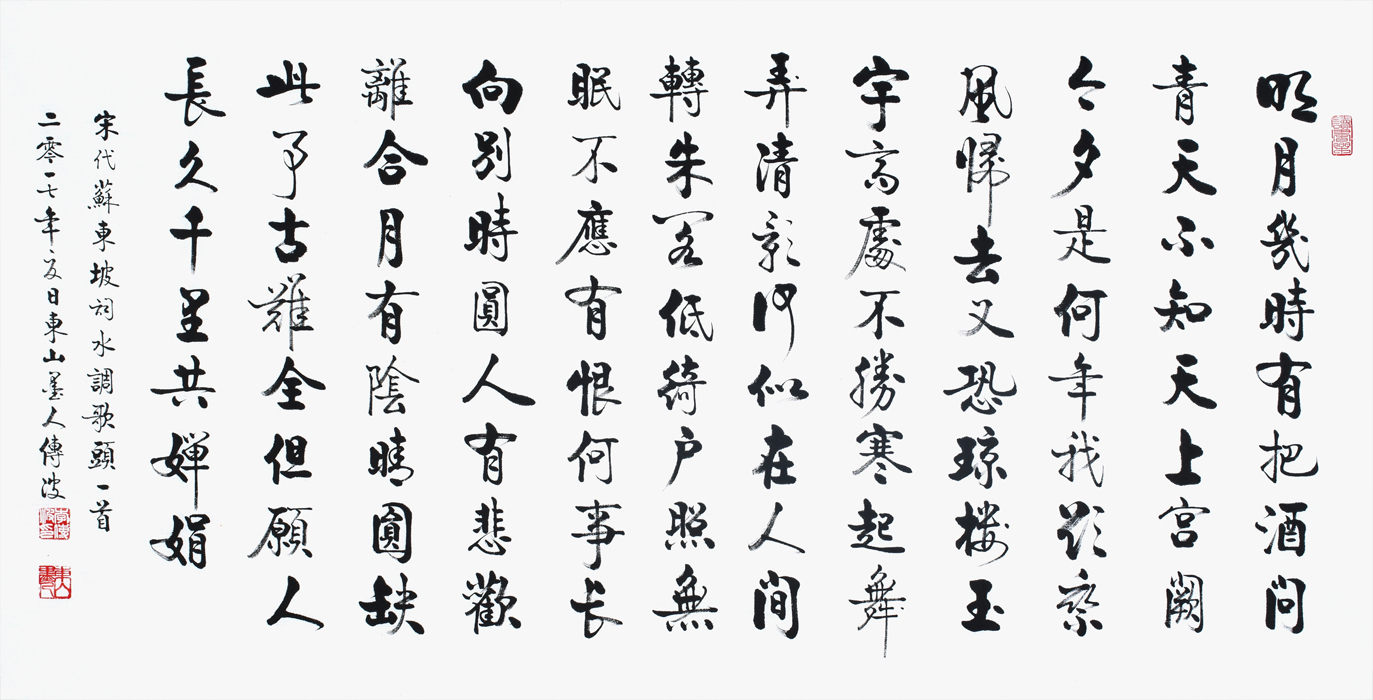 明月幾時有把酒問
青天不知天上宫闕
今夕是何年我欲乘
風歸去又恐瓊楼玉
宇高處不勝寒起舞
弄清影何似在人間
轉朱阁低綺户照無
眠不應有恨何事长
向别時圓人有悲歡
離合月有陰晴圓缺
此事古難全但願人
長久千里共嬋娟
宋代蘇東坡詞水調歌頭一首
二零一七年夏日東山墨人傳波